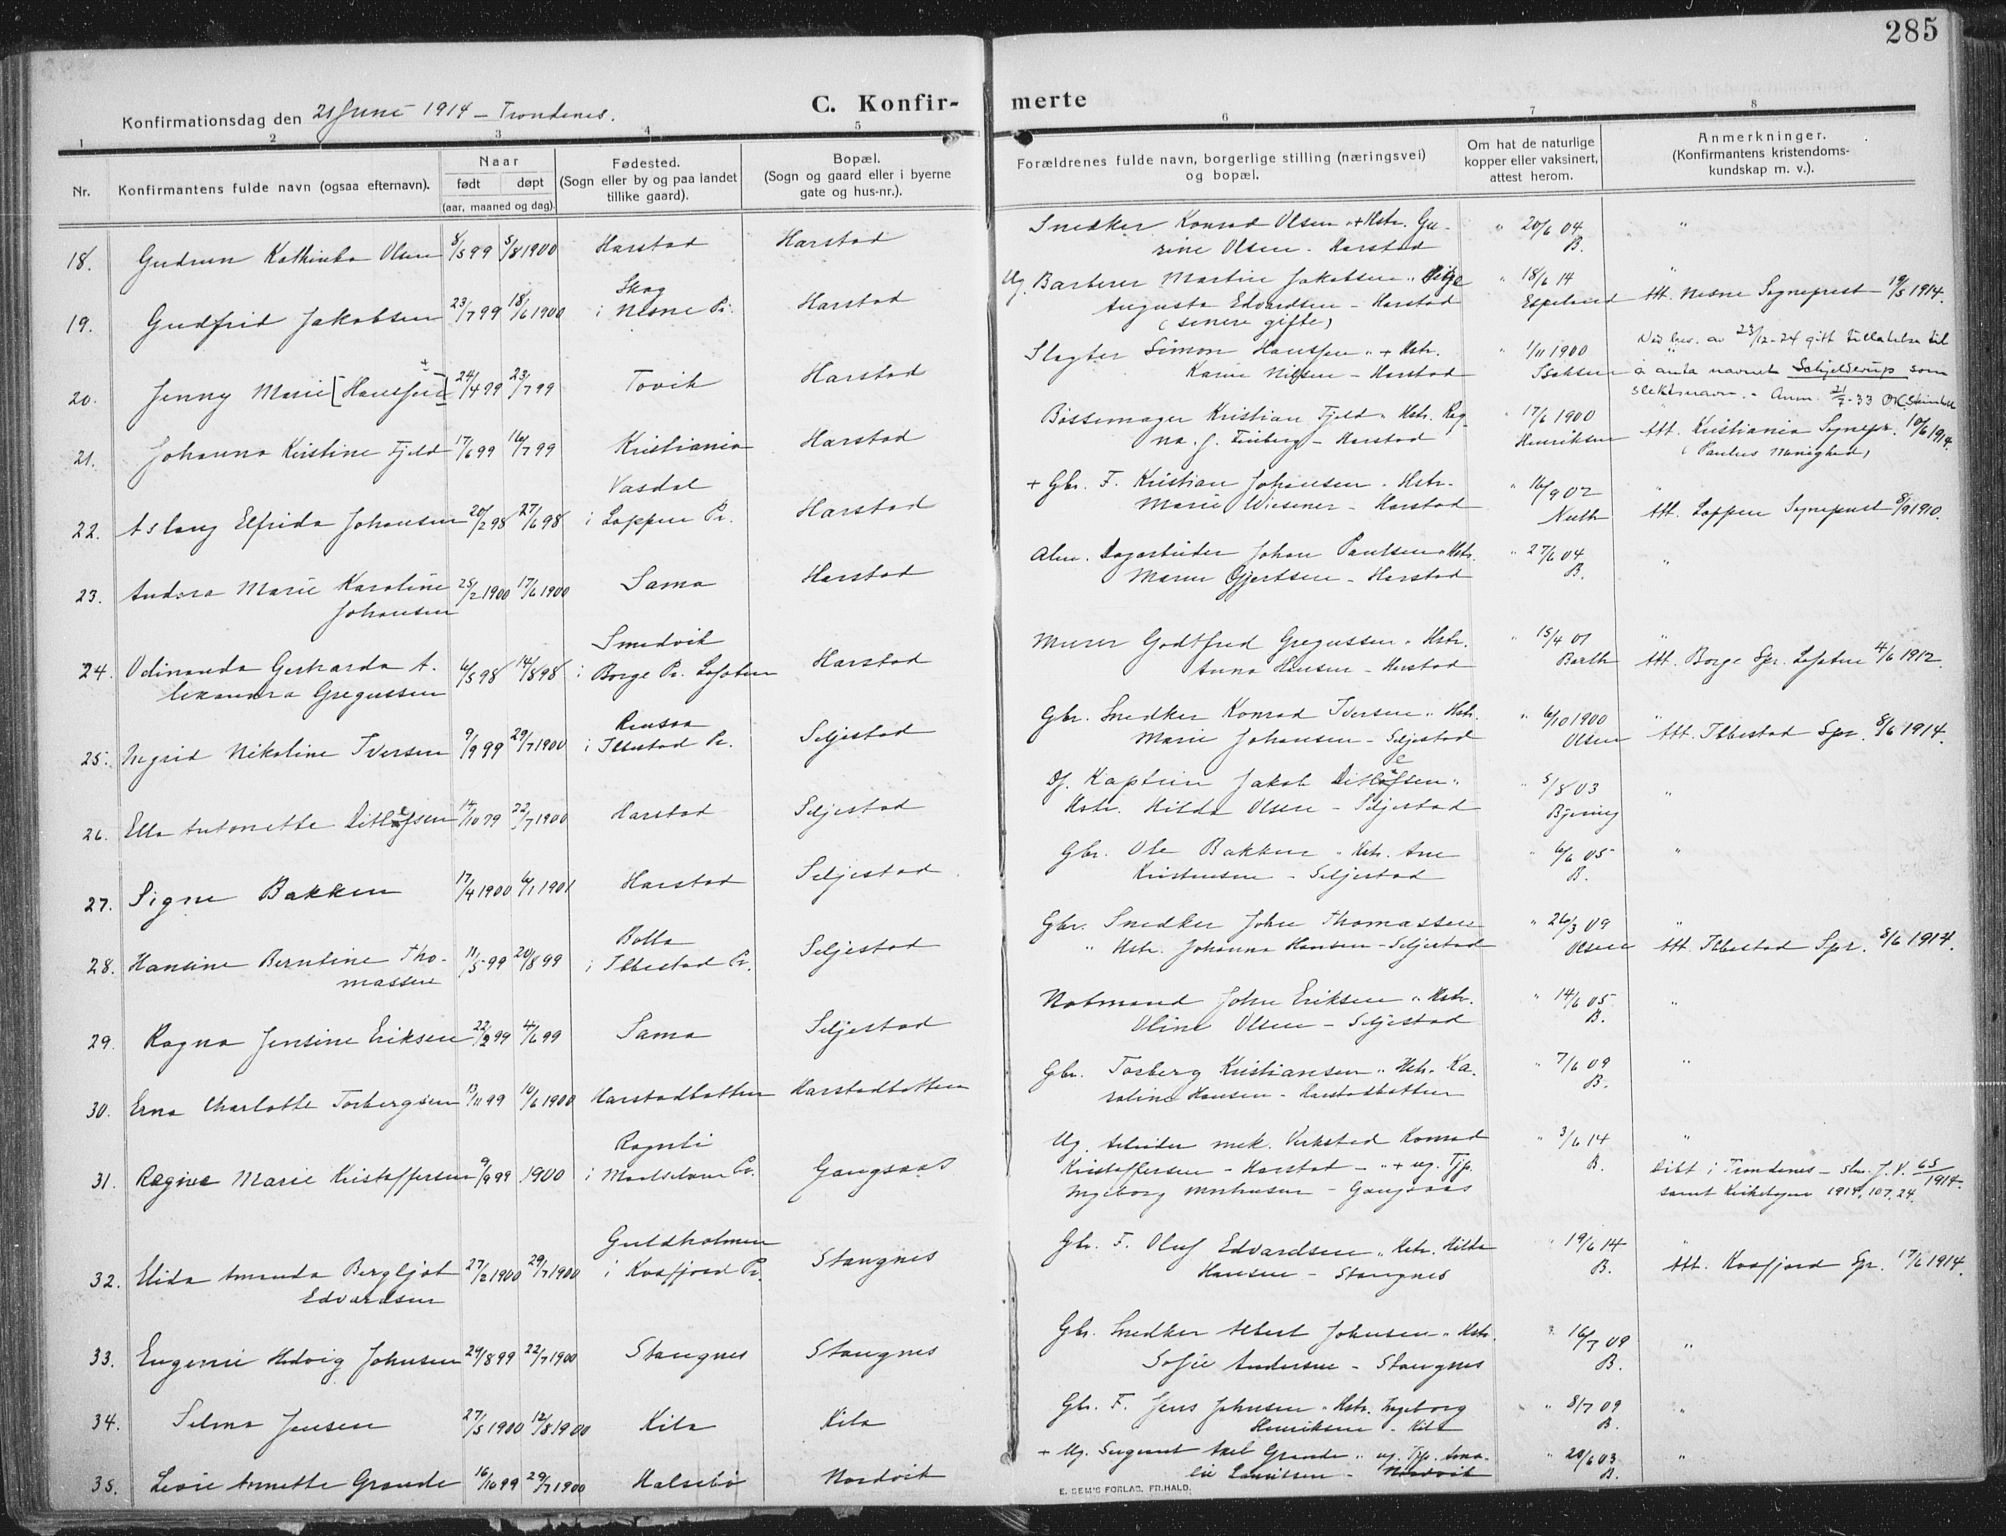 285
Konfirmationsdag den 21 Juni 1914 – Trondenes.
C. Konfir- merte
1 2 3 4 5 6 7 8
Nr. Konfirmantens fulde navn (ogsaa efternavn).
Naar
født døpt
(aar, maaned og dag).
Fødested.
(Sogn eller by og paa landet
tillike gaard).
Bopæl.
(Sogn og gaard eller i byerne
gate og hus-nr.).
Forældrenes fulde navn, borgerlige stilling (næringsvei)
og bopæl.
Om hat de naturlige
kopper eller vaksinert,
attest herom.
Anmerkninger.
(Konfirmantens kristendoms-
kundskap m. v.).
18. Gudrun Kathinka Olsen 8/5 99 5/8 1900 Harstad Harstad Snedker Konrad Olsen "+ Hstr. Gu- " 20/6 04 "
rine Olsen – Harstad B.
Skog
19. Gudfrid Jakobsen 23/7 99 18/6 1900 i Nesne Pr. Harstad Ug. Barberer Martin Jakobsen " Pike " 18/6 14 "
Augusta Edvardsen – Harstad Espeland Att. Nesne Sogneprest 19/5 1914.
(senere gifte)
20. Jenny Marie [Hanssen] + 24/4 99 23/7 99 Tovik Harstad Slagter Simon Hanssen " + Hstr. " 1/11 1900 Ved bev. av 23/12-24 gitt tillatelse til
Karen Nilsen – Harstad Isaksen å anta navnet Schjelderup som
slektsnavn. – Anm. 21/7-33
21. Johanna Kristine Fjeld 17/6 99 16/7 99 Kristiania Harstad Bøssemager Kristian Fjeld " Hstr. Rag- " 17/6 1900 "
na. J. Finberg – Harstad Henriksen Att. Kristiania Sognepr. 10/6 1914.
(Paulus Menighed)
Vasdal
22. Aslaug Elfrida Johansen 20/2 98 27/6 98 i Loppen Pr. Harstad + Gbr. F. Kristian Johansen " Hstr. " 16/9 02 "
Marie Wiesener – Harstad Att. Loppen Sogneprest 8/9 1910.
23. Andora Marie Karoline 25/2 1900 17/6 1900 Sama Harstad Alm. Dagarbeider Johan Paulsen " Hstr. " 27/6 04 "
Johansen Maren Gjertsen – Harstad B.
Smedvik
24. Odinanda Gerharda A- 6/5 98 14/8 98 i Borge Pr. Lofoten Harstad Murer Godtfred Gregussen " Hstr. " 15/4 01 "
lexandra Gregussen Anna Hansen – Harstad Barth Att. Borge Spr. Lofoten 4/6 1912.
Rensaa
25. Ingrid Nikoline Iversen 9/9 99 29/7 1900 i Ibbestad Pr. Seljestad Gbr. Snedker Konrad Iversen " Hstr. " 6/10 1900 "
Marie Johansen – Seljestad Olsen Att. Ibbestad Spr. 8/6 1914.
26. Ella Antonette Ditlefsen 14/10 79 22/7 1900 Harstad Seljestad Df. Kaptein Jakob Ditlefsen " " 5/8 03 "
Hstr. Hilda Olsen – Seljestad
27. Signe Bakken 17/4 1900 6/1 1901 Harstad Seljestad Gbr. Ole Bakken " Hstr. Ane " 6/6 05 "
Kristensen – Seljestad B.
Bolla
28. Hansine Berntine Tho- 11/5 99 20/8 99 i Ibbestad Pr. Seljestad Gbr. Snedker John Thomassen " 26/3 09 "
massen " Hstr. Johanna Hansen – Seljestad Olsen Att. Ibbestad Spr. 8/6 1914.
29. Ragna Jensine Eriksen 22/2 99 4/6 99 Sama Seljestad Notmand John Eriksen " Hstr. " 14/6 05 "
Oline Olsen – Seljestad B.
30. Erna Charlotte Torbergsen 13/11 99 10/6 1900 Harstadbotten Harstadbotten Gbr. Torberg Kristiansen " Hstr. Ka- " 7/6 09 "
roline Hansen – Harstadbotten B.
Rognli
31. Ragna Marie Kristoffersen 9/9 99 1900 i Maalselven Pr. Gangsaas Ug. Arbeider mek. Verksted Konrad " 3/6 14 "
Kristoffersen – Harstad – " + ug. Tjp. B. Døbt i Trondenes – skr. J. N. 65/1914.
Ingeborg – Gangsaas samt Kirkebogen 1914, 107, 24.
Guldholmen
32. Elida Amanda Bergljot 27/2 1900 29/7 1900 i Kvæfjord Pr. Stangnes Gbr. F. Oluf Edvardsen " Hstr. Hilda " 19/6 14 "
Edvardsen Hansen – Stangnes B. Att. Kvæfjord Spr. 17/6 1914.
33. Eugenie Hedvig Johnsen 24/8 99 22/7 1900 Stangnes Stangnes Gbr. Snedker Albert Johnsen " Hstr. " 16/7 09 "
Sofie Andersen – Stangnes B.
34. Selma Jensen 27/5 1900 12/8 1900 Kila Kila Gbr. F. Jens Johnsen " Hstr. Ingeborg " 8/7 09 "
Henriksen – Kila B.
35. Annette Grande 16/10 99 29/7 1900 Halsebø Nordvik + Ug. Sergeant Axel Grande " ug. Tjp. Ama- " 20/6 03 "
lie Lauritsen – Nordvik B.
E. SEM'S FORLAG, FR.HALD.